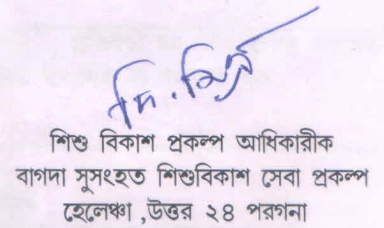 শিশু বিকাশ প্রকল্প আধিকারীক
বাগদা সুসংহত শিশুবিকাশ সেবা প্রকল্প
হেলেঞ্চা ,উত্তর ২৪ পরগনা